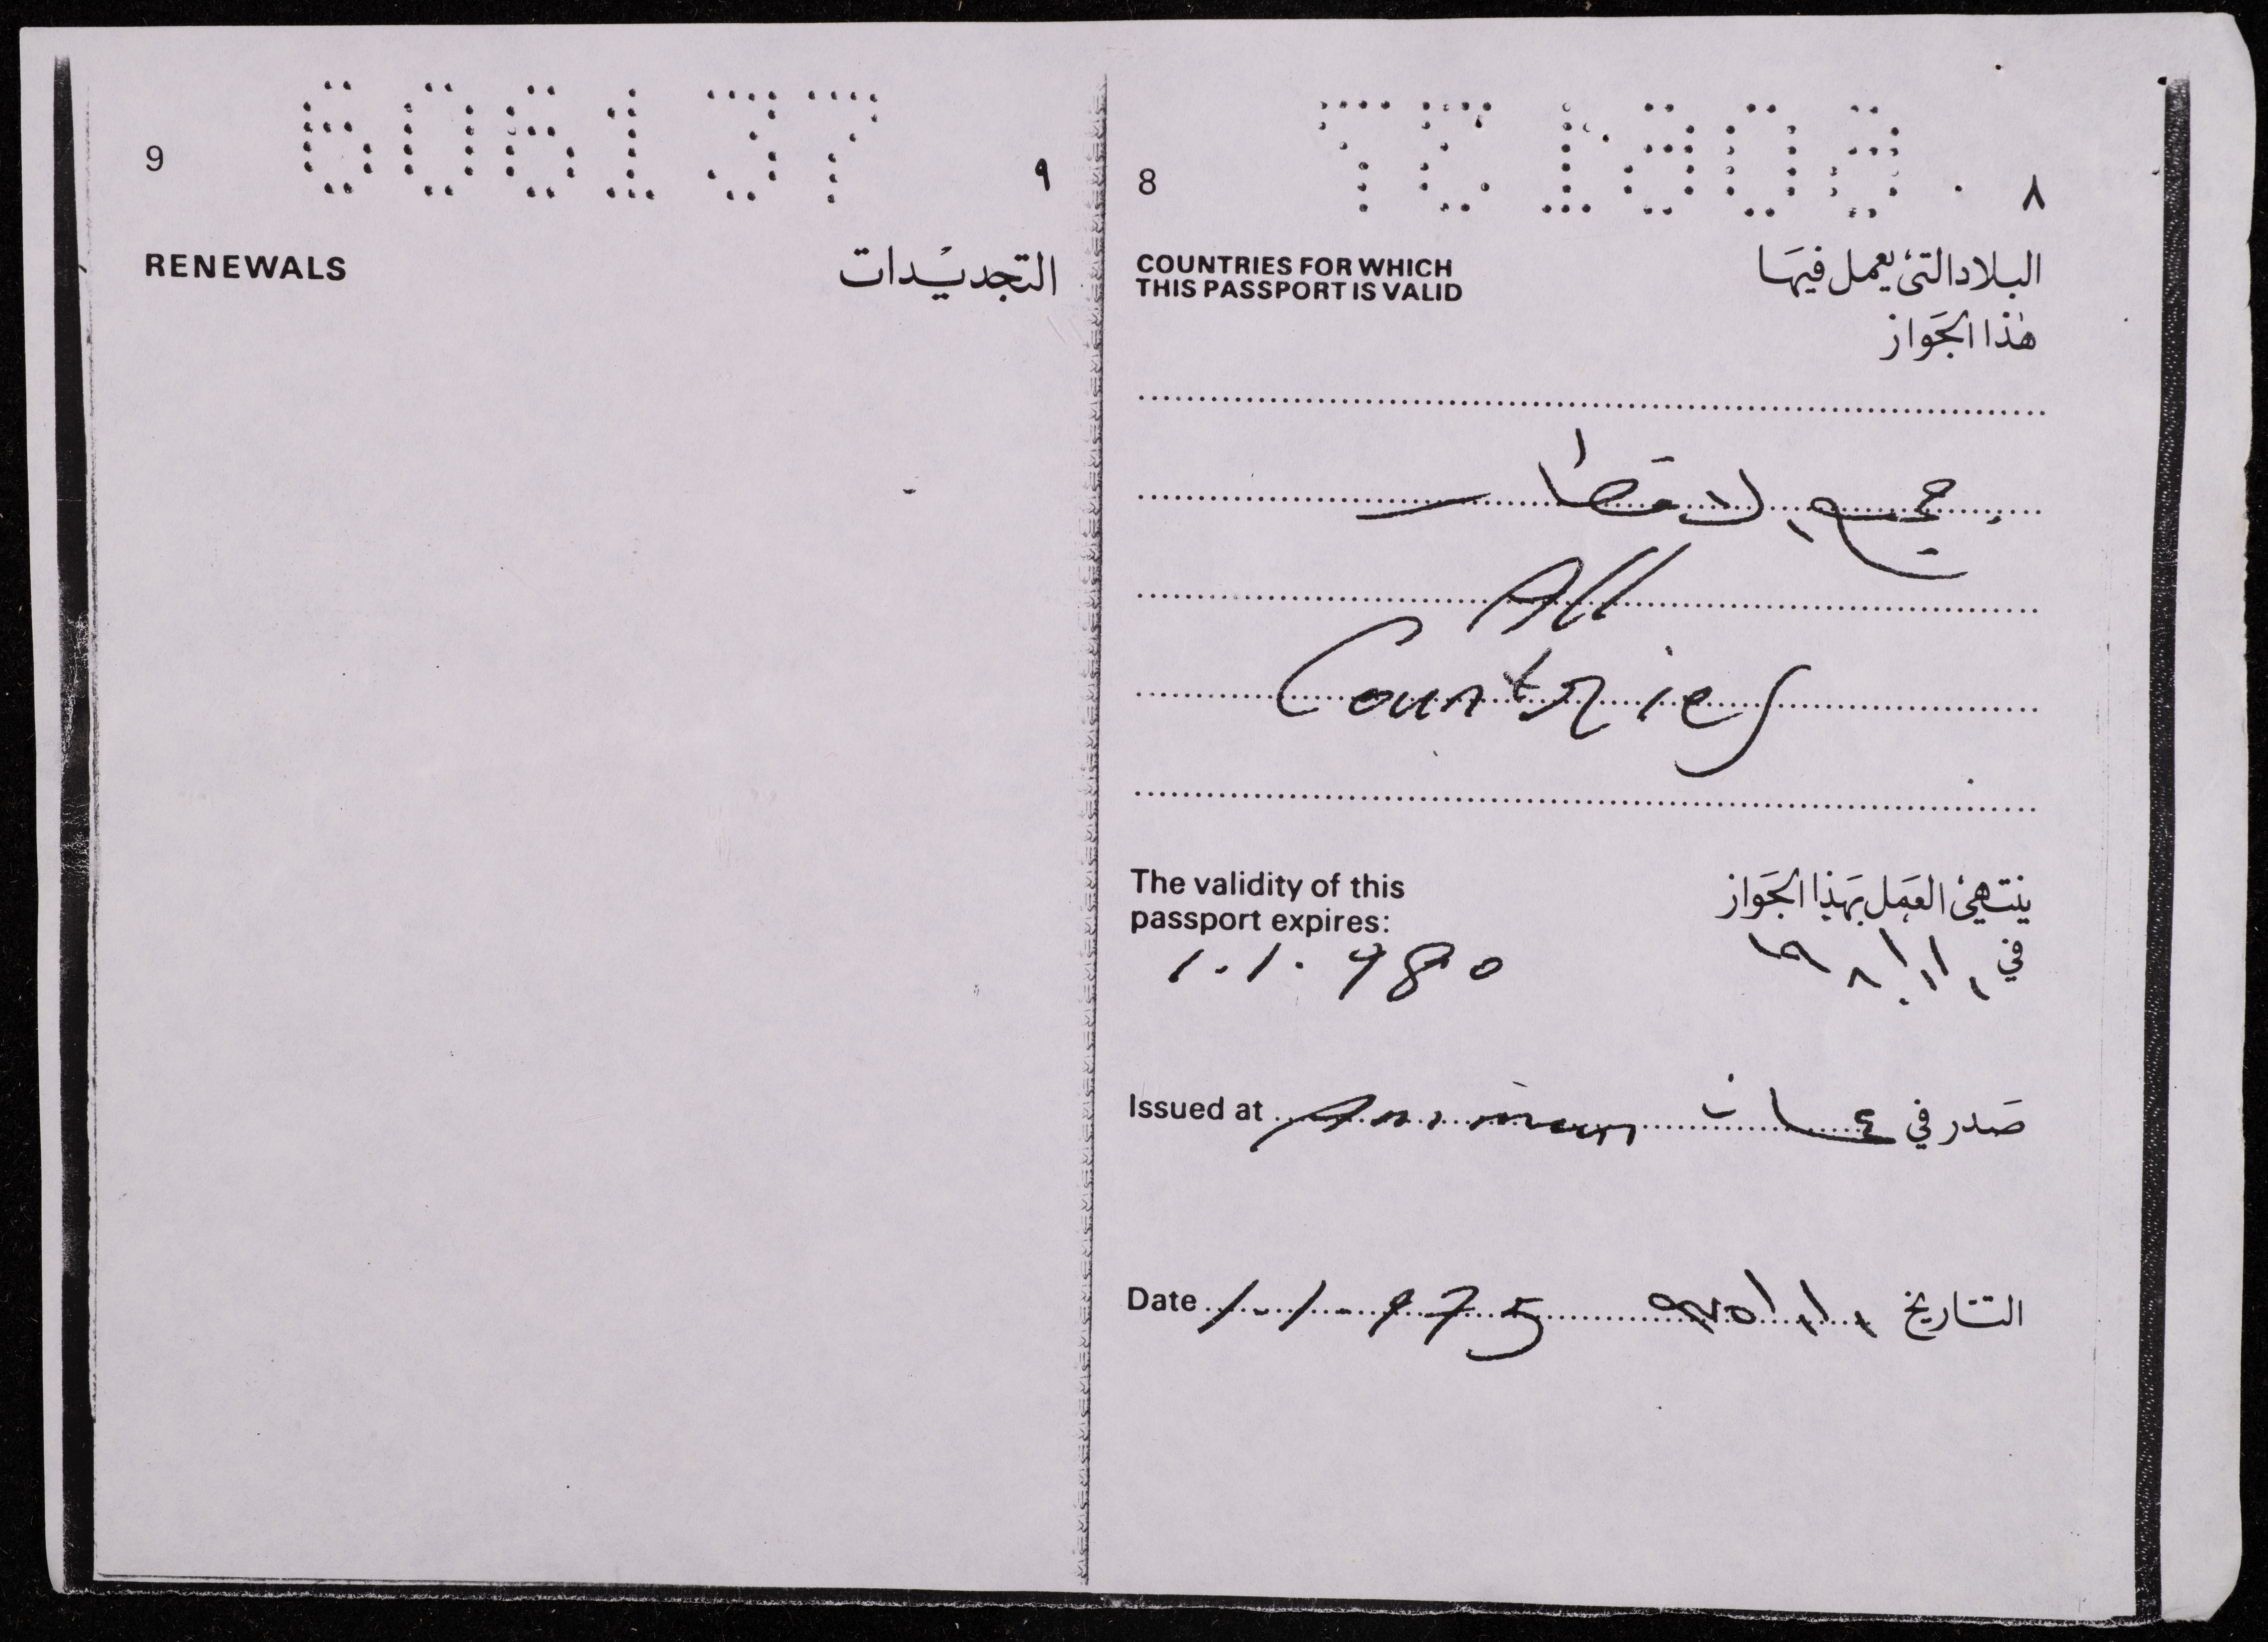 606137
9 ٩
RENEWALS التجديدات
606137
8 ٨
COUNTRIES FOR WHICH
THIS PASSPORT IS VALID
البلاد التي يعمل فيها
هذا الجواز
جميع الاقطار
All
Countries
The validity of this
passport expires:
1.1.980
ينتهي العمل بهذا الجواز
في ١/١/١٩٨٠
Issued at Amman صدر في عمان
Date 1-1-975 التاريخ ١/١/٩٧٥